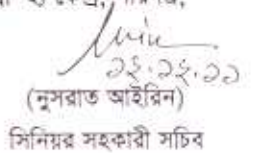 ১২.১২.১১
(নুসরাত আইরিন)
সিনিয়র সহকারী সচিব